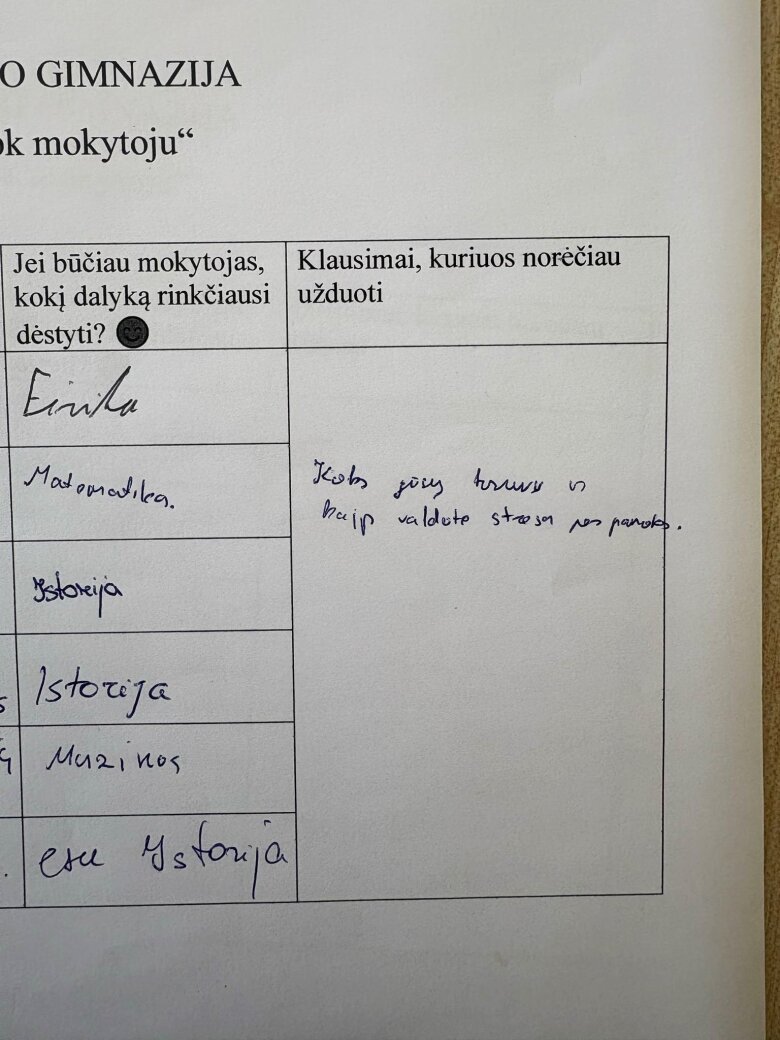 O GIMNAZIJA
ok mokytoju“
Jei būčiau mokytojas,
kokį dalyką rinkčiausi
dėstyti?
Klausimai, kuriuos norėčiau
užduoti
Matematika.
kaip valdote stresą per pamokas.
Istorija
Istorija
Muzikos
esu Istorija